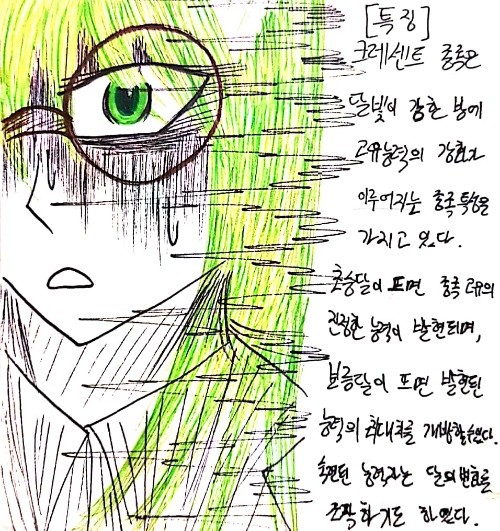 [특징]
크레센트 종족은
달빛이 강한 밤에
고유능력의 강화가
이루어지는 종족특성을
가지고 있다.
초승달이 뜨면 종족 고유의
진정한 능력이 발현되며,
보름달이 뜨면 발현된
능력의 최대치를 개방할 수 있다.
숙련된 능력자는 달의 변화를
조작하기도 하였다.